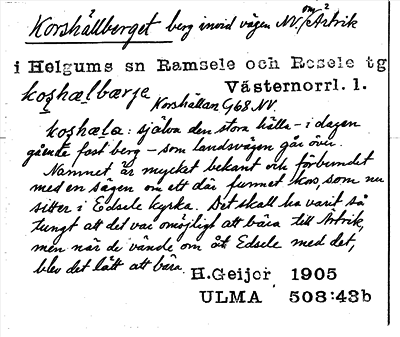 Korshällberget berg invid vägen NV om Artrik
i Helgums sn Ramsele och Resele tg
koʂhælbærjə Västernorrl. l.
Korshällan G68 NV.
koʂhæla: själva den stora hälla – i dagen
gående fast berg – som landsvägen går över.
Namnet är mycket bekant och förbundet
med en sägen om ett där funnet kors, som nu
sitter i Edsele kyrka. Det skall ha varit så
tungt att det var omöjligt att bära till Artrik,
men när de vände om åt Edsele med det,
blev det lätt att bära.
H.Geijer 1905
ULMA 508:43b